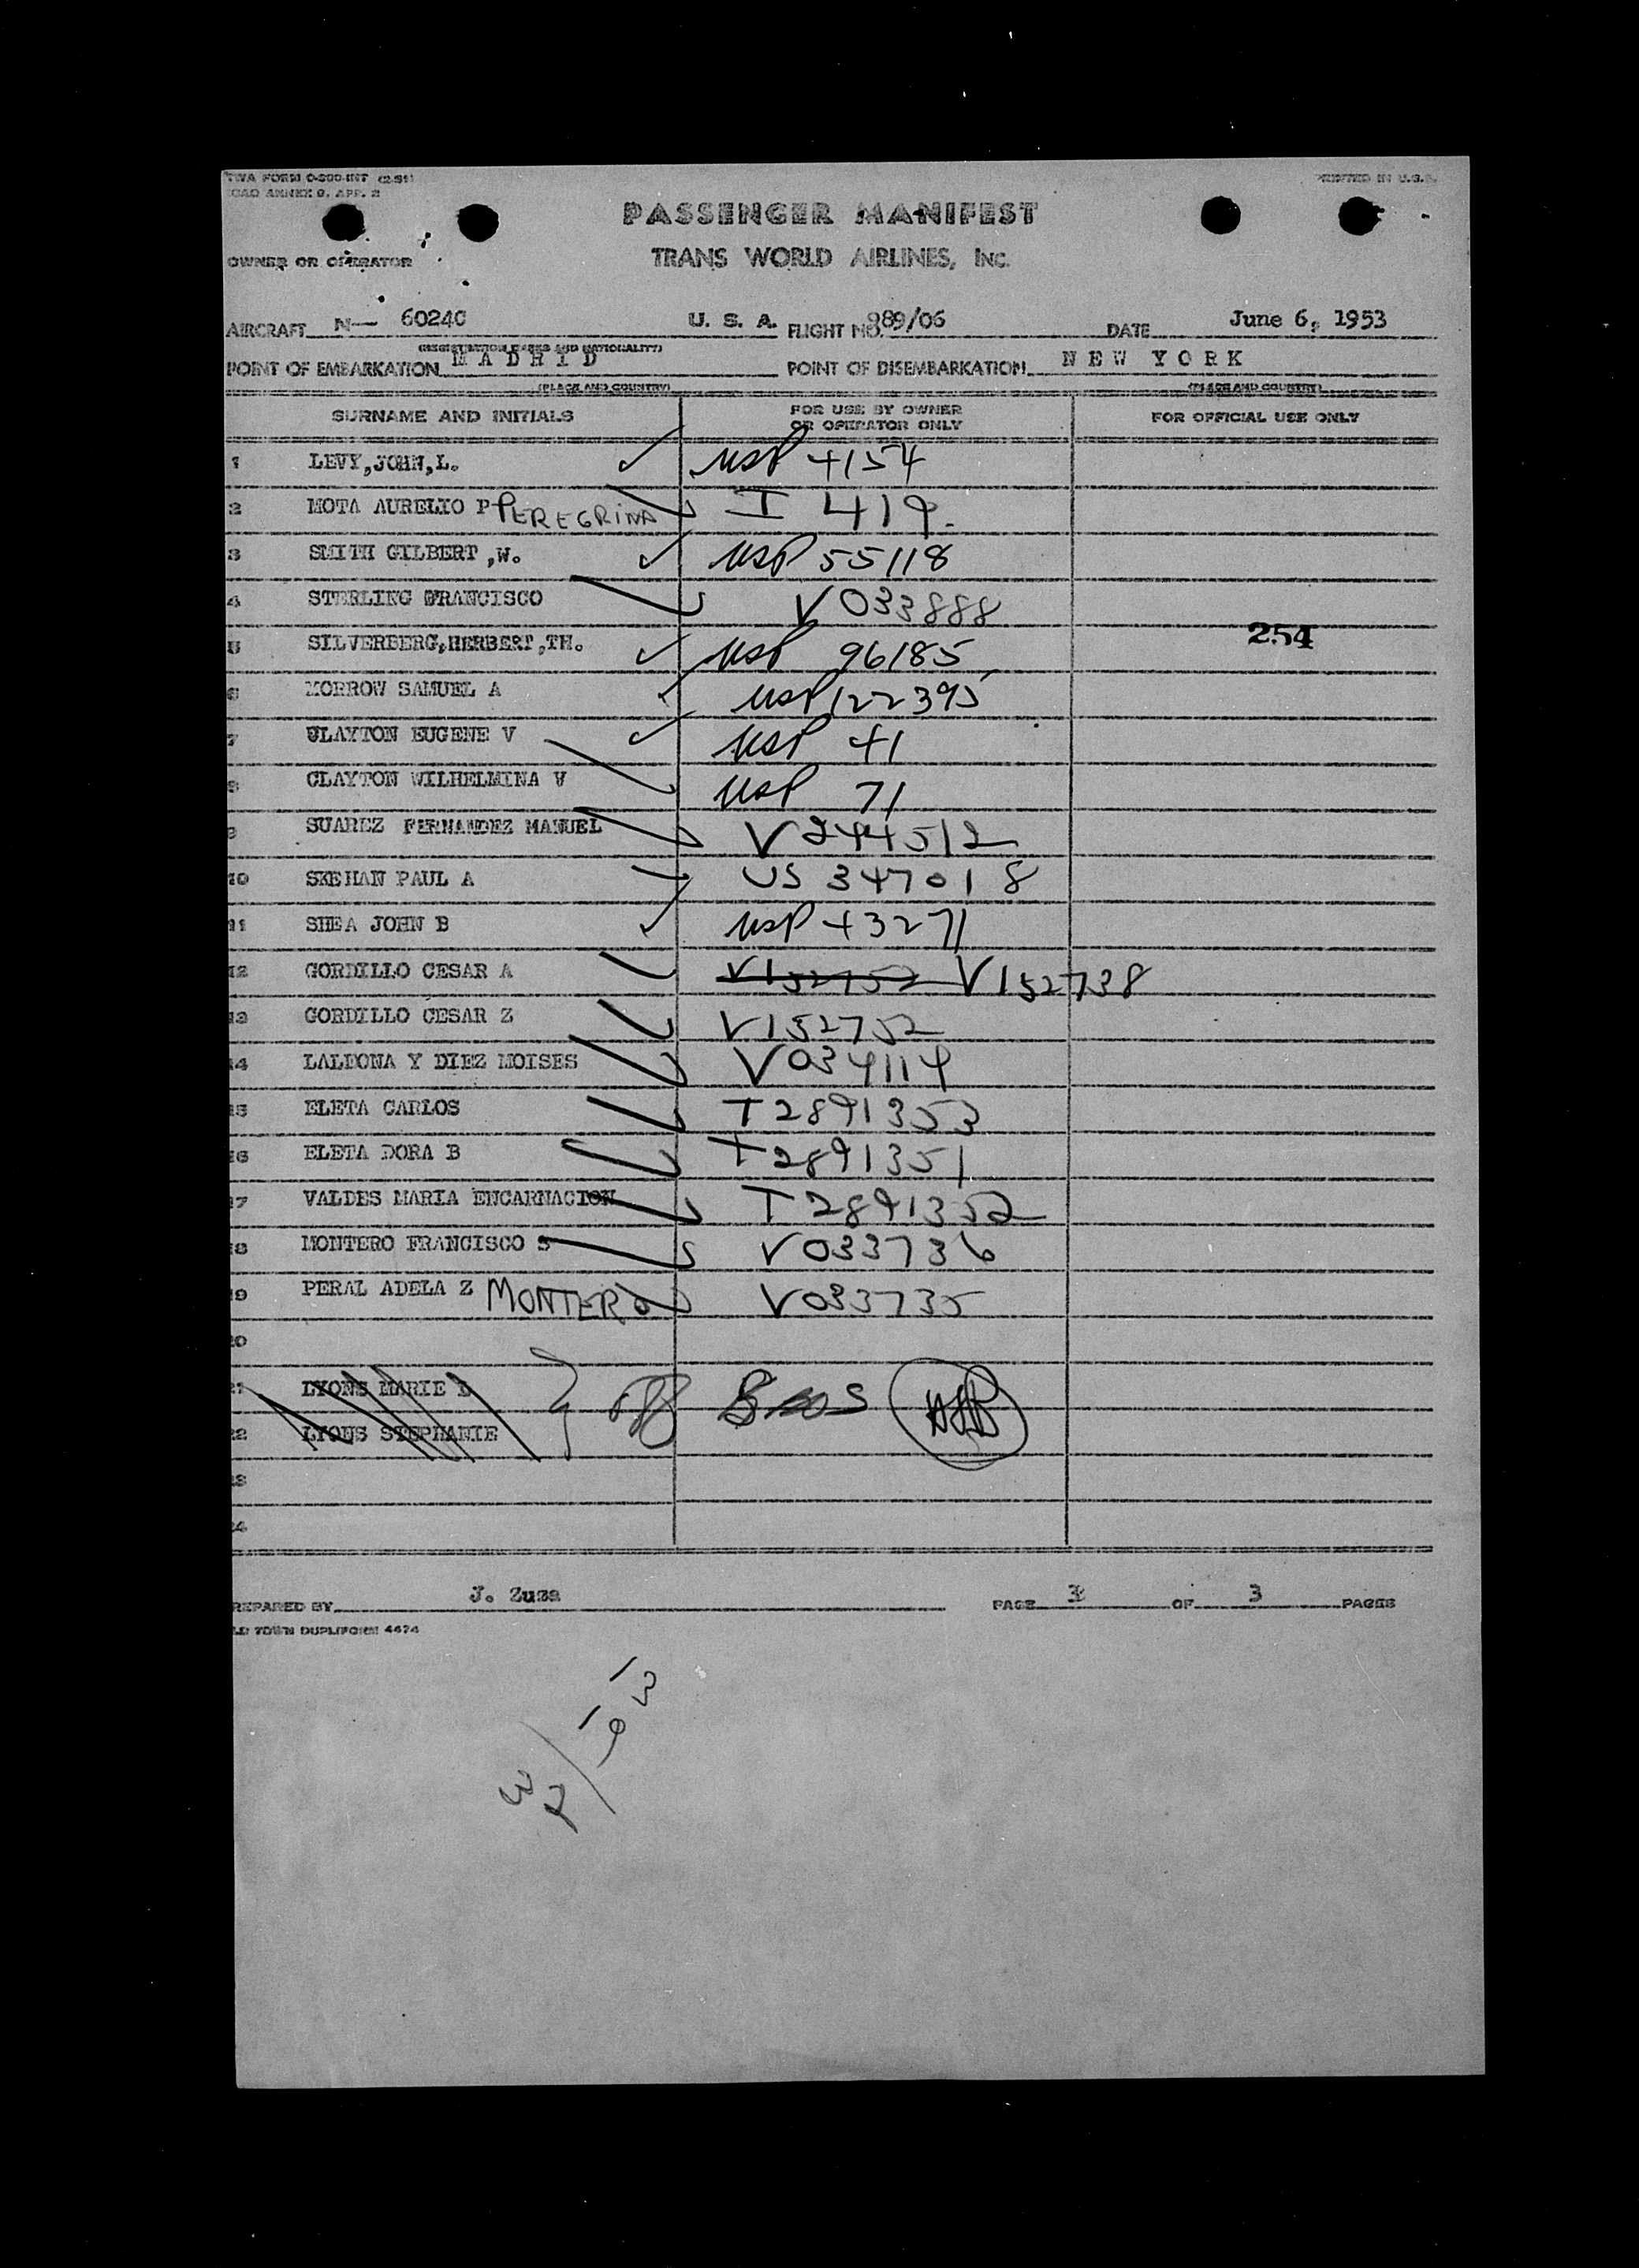 TWA FORM O-800-INT (2-51)
ICAO ANNEX 9, APP. 2
PRINTED IN U.S.A.
PASSENGER MANIFEST
OWNER OR OPERATOR
TRANS WORLD AIRLINES, INC.
AIRCRAFT N— 6024C U. S. A. FLIGHT NO. 989/06 DATE June 6, 1953
(REGISTRATION MARKS AND NATIONALITY)
POINT OF EMBARKATION M A D R I D POINT OF DISEMBARKATION N E W Y O R K
(PLACE AND COUNTRY) (PLACE AND COUNTRY)
SURNAME AND INITIALS FOR USE BY OWNER OR OPERATOR ONLY FOR OFFICIAL USE ONLY
1 LEVY,JOHN,L. ✓ USP 4154
2 MOTA AURELIO P PEREGRINA I 419.
3 SMITH GILBERT ,W. ✓ USP 55118
4 STERLING FRANCISCO V 033888
5 SILVERBERG,HERBERT,TH. ✓ USP 96185 254
6 MORROW SAMUEL A ✓ USP 122395
7 CLAYTON EUGENE V ✓ USP 41
8 CLAYTON WILHELMINA V USP 71
9 SUAREZ FERNANDEZ MANUEL V244512
10 SKEHAN PAUL A US 347018
11 SHEA JOHN B ✓ USP 43271
12 GORDILLO CESAR A V152752 V152738
13 GORDILLO CESAR Z V152752
14 LALDONA Y DIEZ MOISES V034114
15 ELETA CARLOS T2891353
16 ELETA DORA B T2891351
17 VALDES MARIA ENCARNACION T2891352
18 MONTERO FRANCISCO S V033736
19 PERAL ADELA Z MONTERO V033735
20
21 LYONS MARIE L
22 LYONS STEPHANIE
23
24
PREPARED BY J. Zuza PAGE 3 OF 3 PAGES
OLD TOWN DUPLIFORM 4474